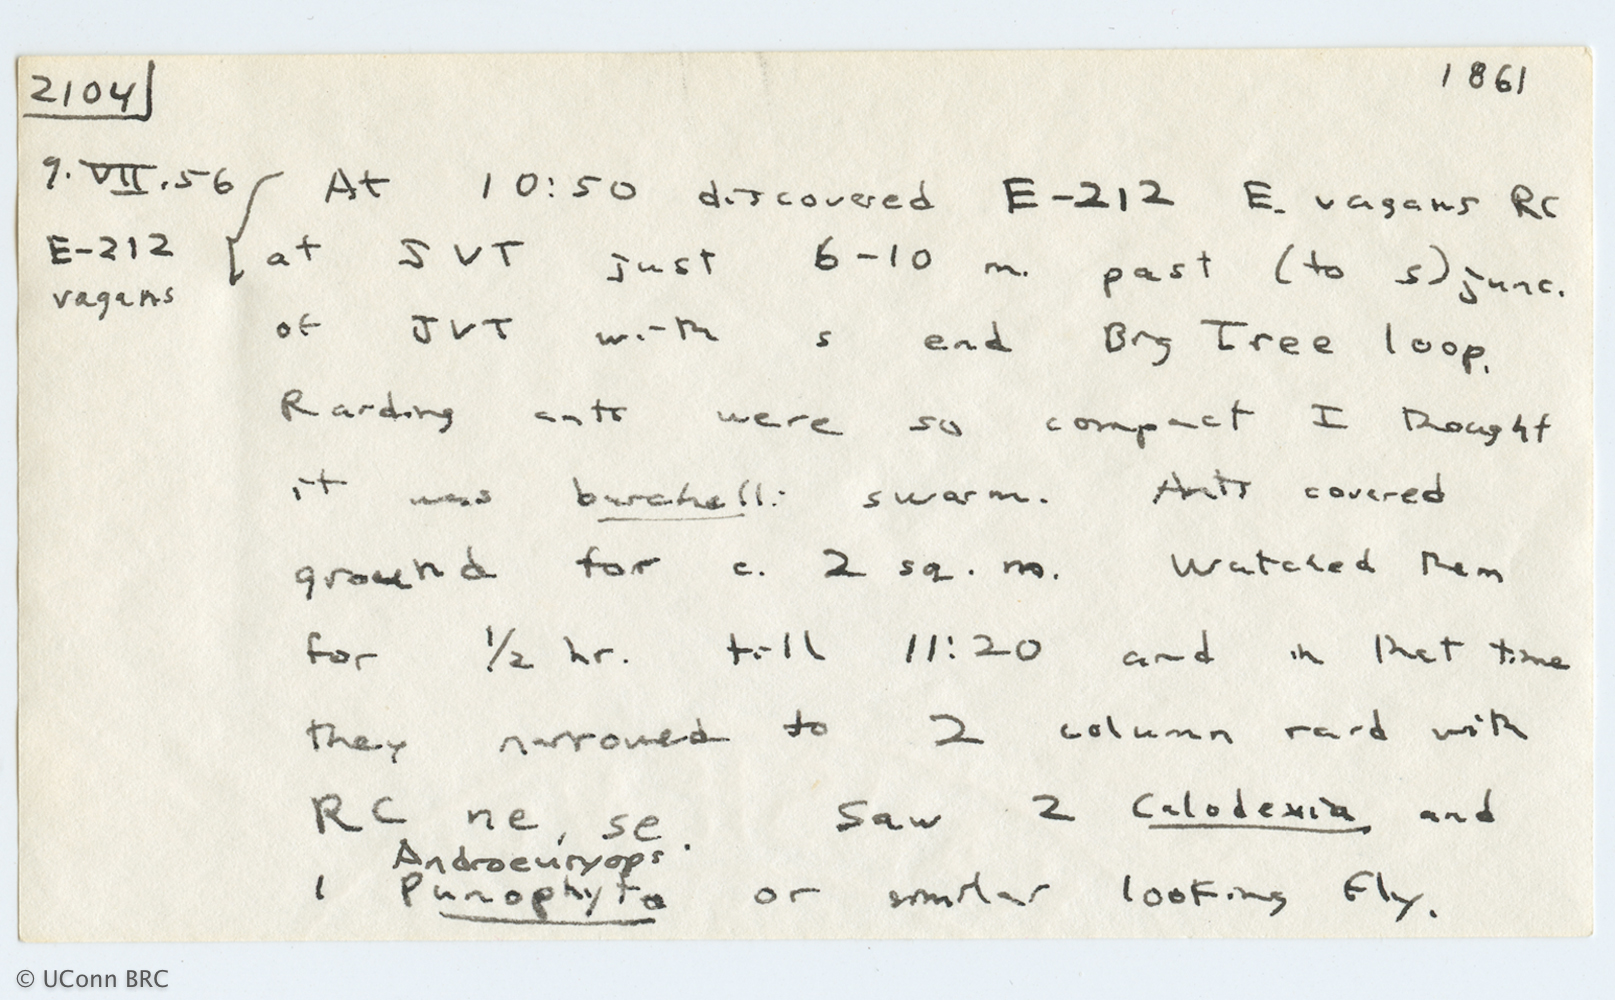 2104
1861
9.VII.56
E-212
vagans
At 10:50 discovered E-212 E. vagans RC
at SVT just 6-10 m. past (to s) junc.
of JVT with s end Big Tree loop.
Raiding ants were so compact I thought
it was burchelli swarm. Ants covered
ground for c. 2 sq. m. Watched them
for 1/2 hr. till 11:20 and in that time
they narrowed to 2 column raid with
RC ne, se. Saw 2 Calodexia and
Androeuryops
1 Punophyto or similar looking fly.
© UConn BRC